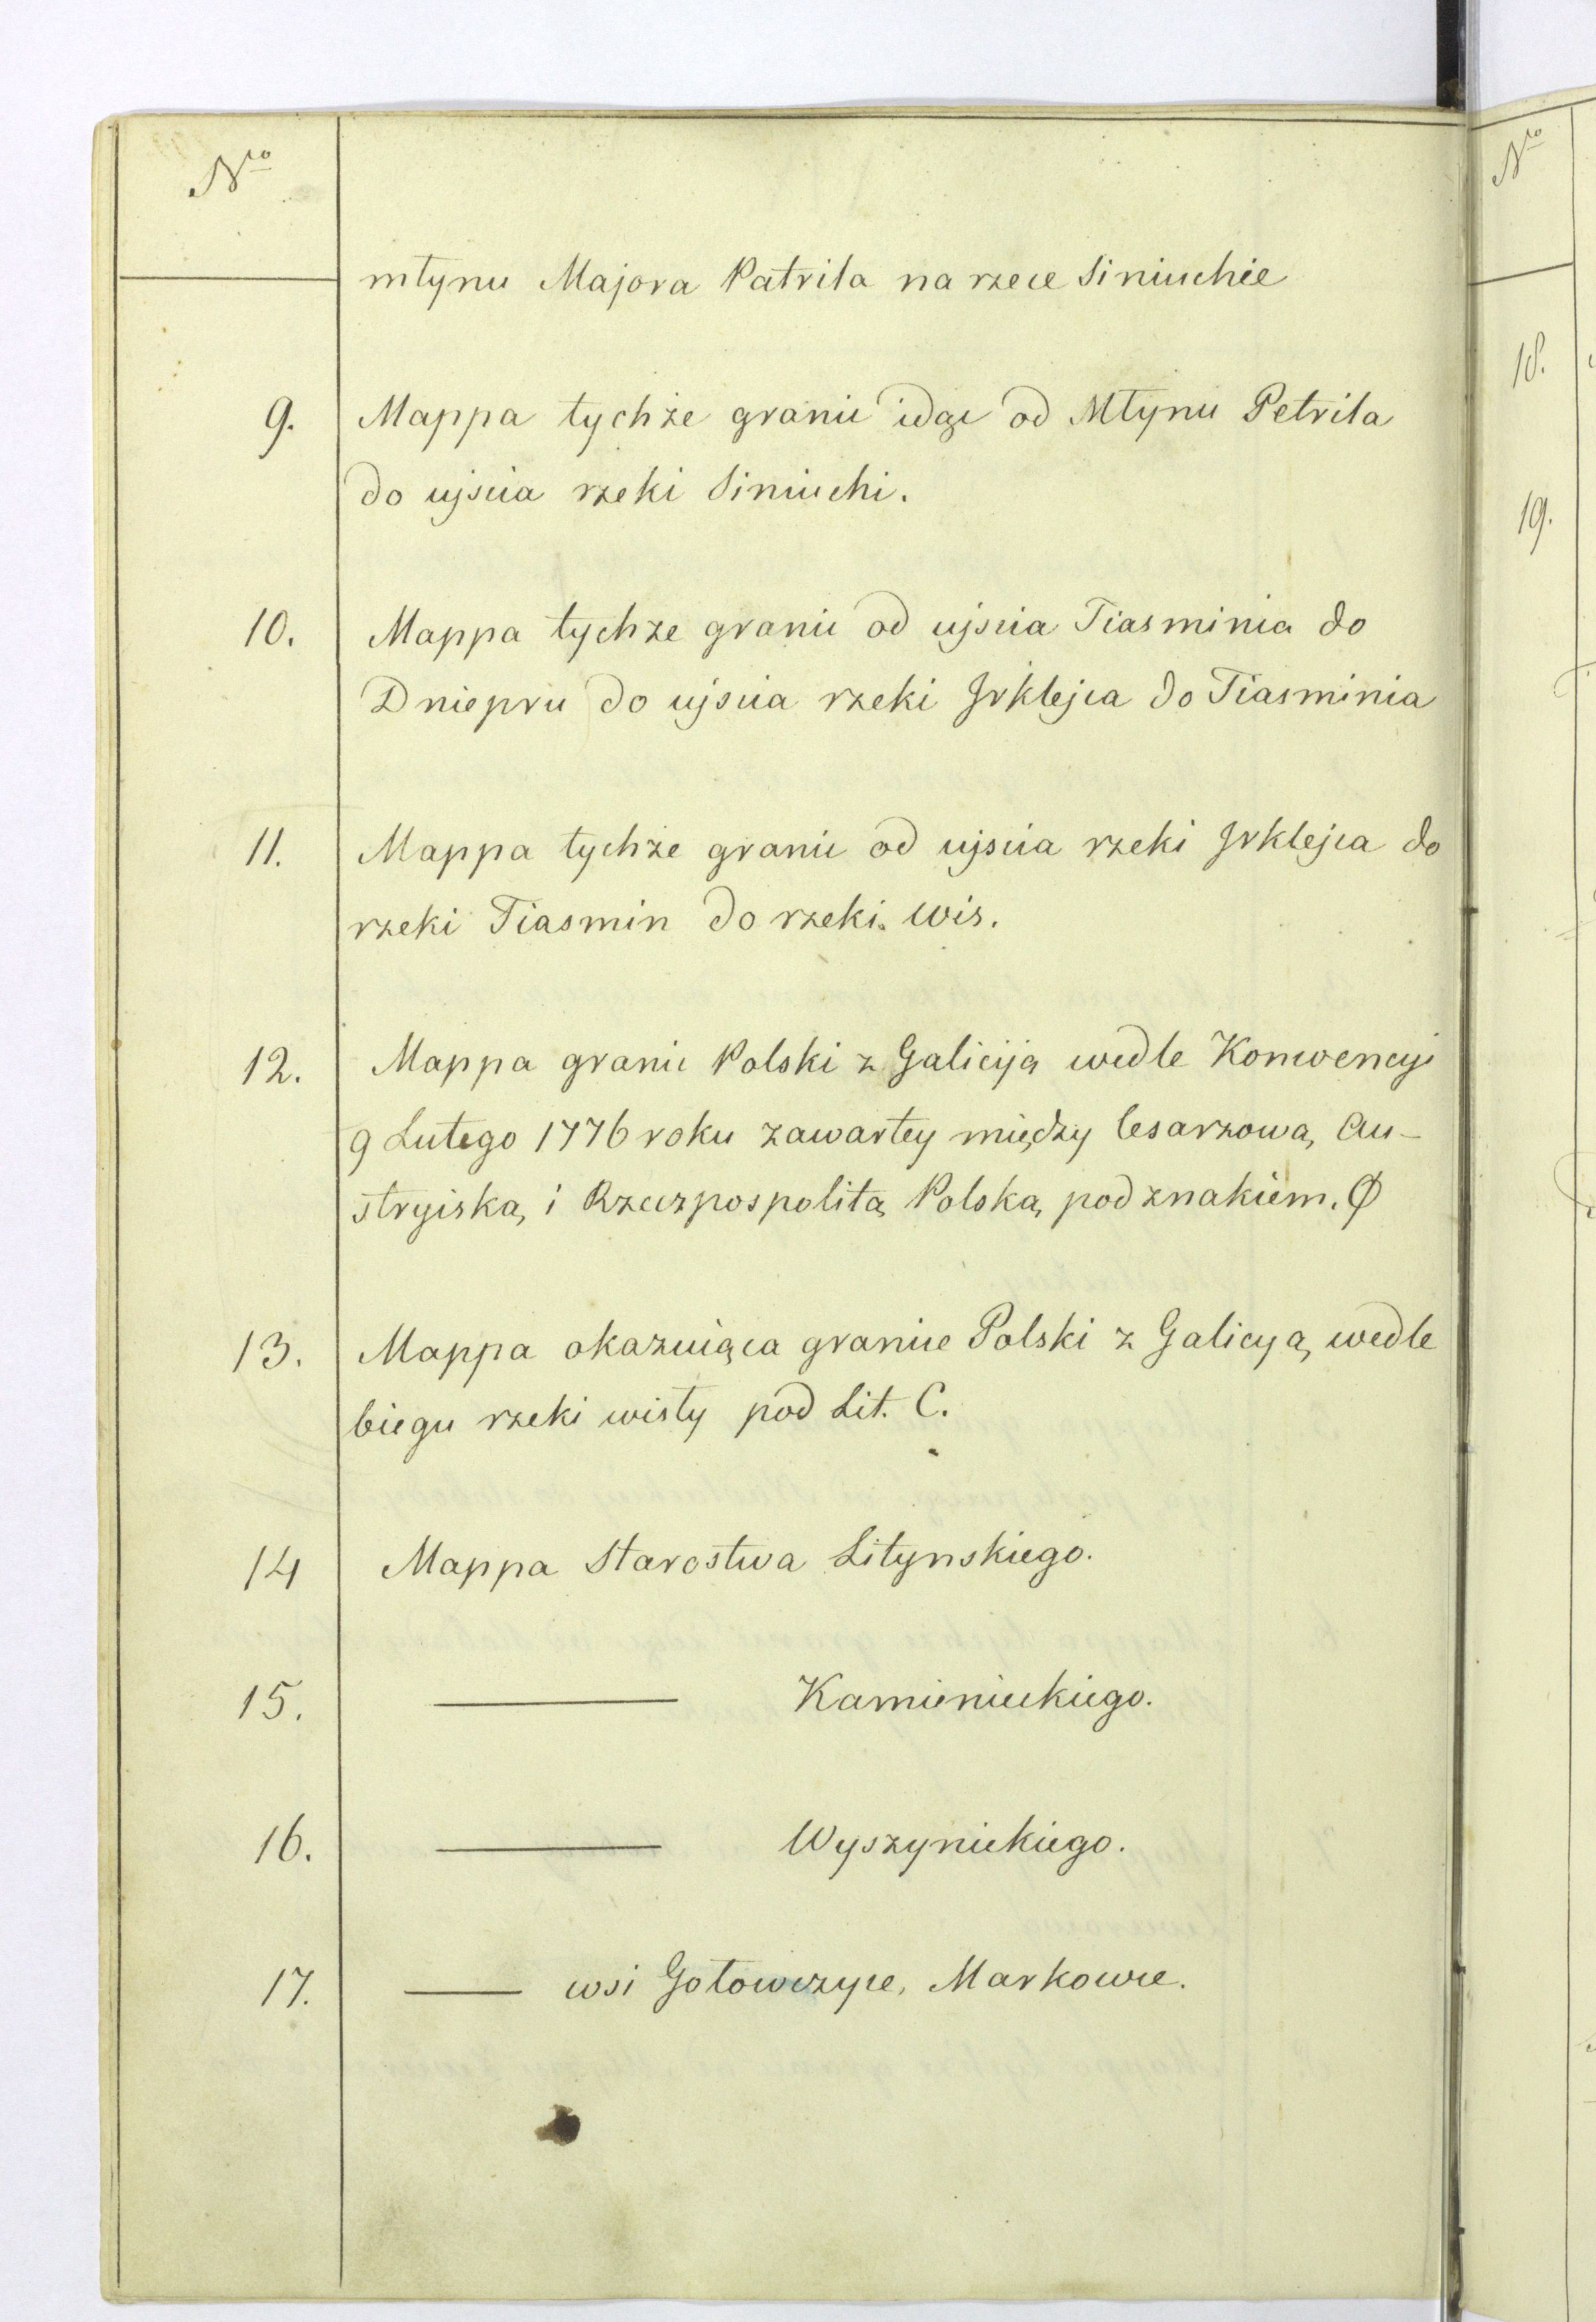 No
młynu Majora Patrila na rzece Siniuchie
9. Mappa tychże granic idąc od Młynu Petrila
do ujscia rzeki Siniuchi.
10. Mappa tychże granic od ujscia Tiasminia do
Dniepru do ujscia rzeki Irklejca do Tiasminia
11. Mappa tychże granic od ujscia rzeki Irklejca do
rzeki Tiasmin do rzeki. Wis.
12. Mappa granic Polski z Galicija wedle Konwencyi
9 Lutego 1776 roku zawartey między Cesarzową Au-
stryiską i Rzeczpospolitą Polską pod znakiem. Ф
13. Mappa okazuiąca granice Polski z Galicyą wedle
biegu rzeki wisły pod Lit. C.
14 Mappa Starostwa Litynskiego.
15. ——— Kamienieckiego.
16. ——— Wyszynieckiego.
17. —— wsi Gołowczyce, Markowce.
No
18.
19.